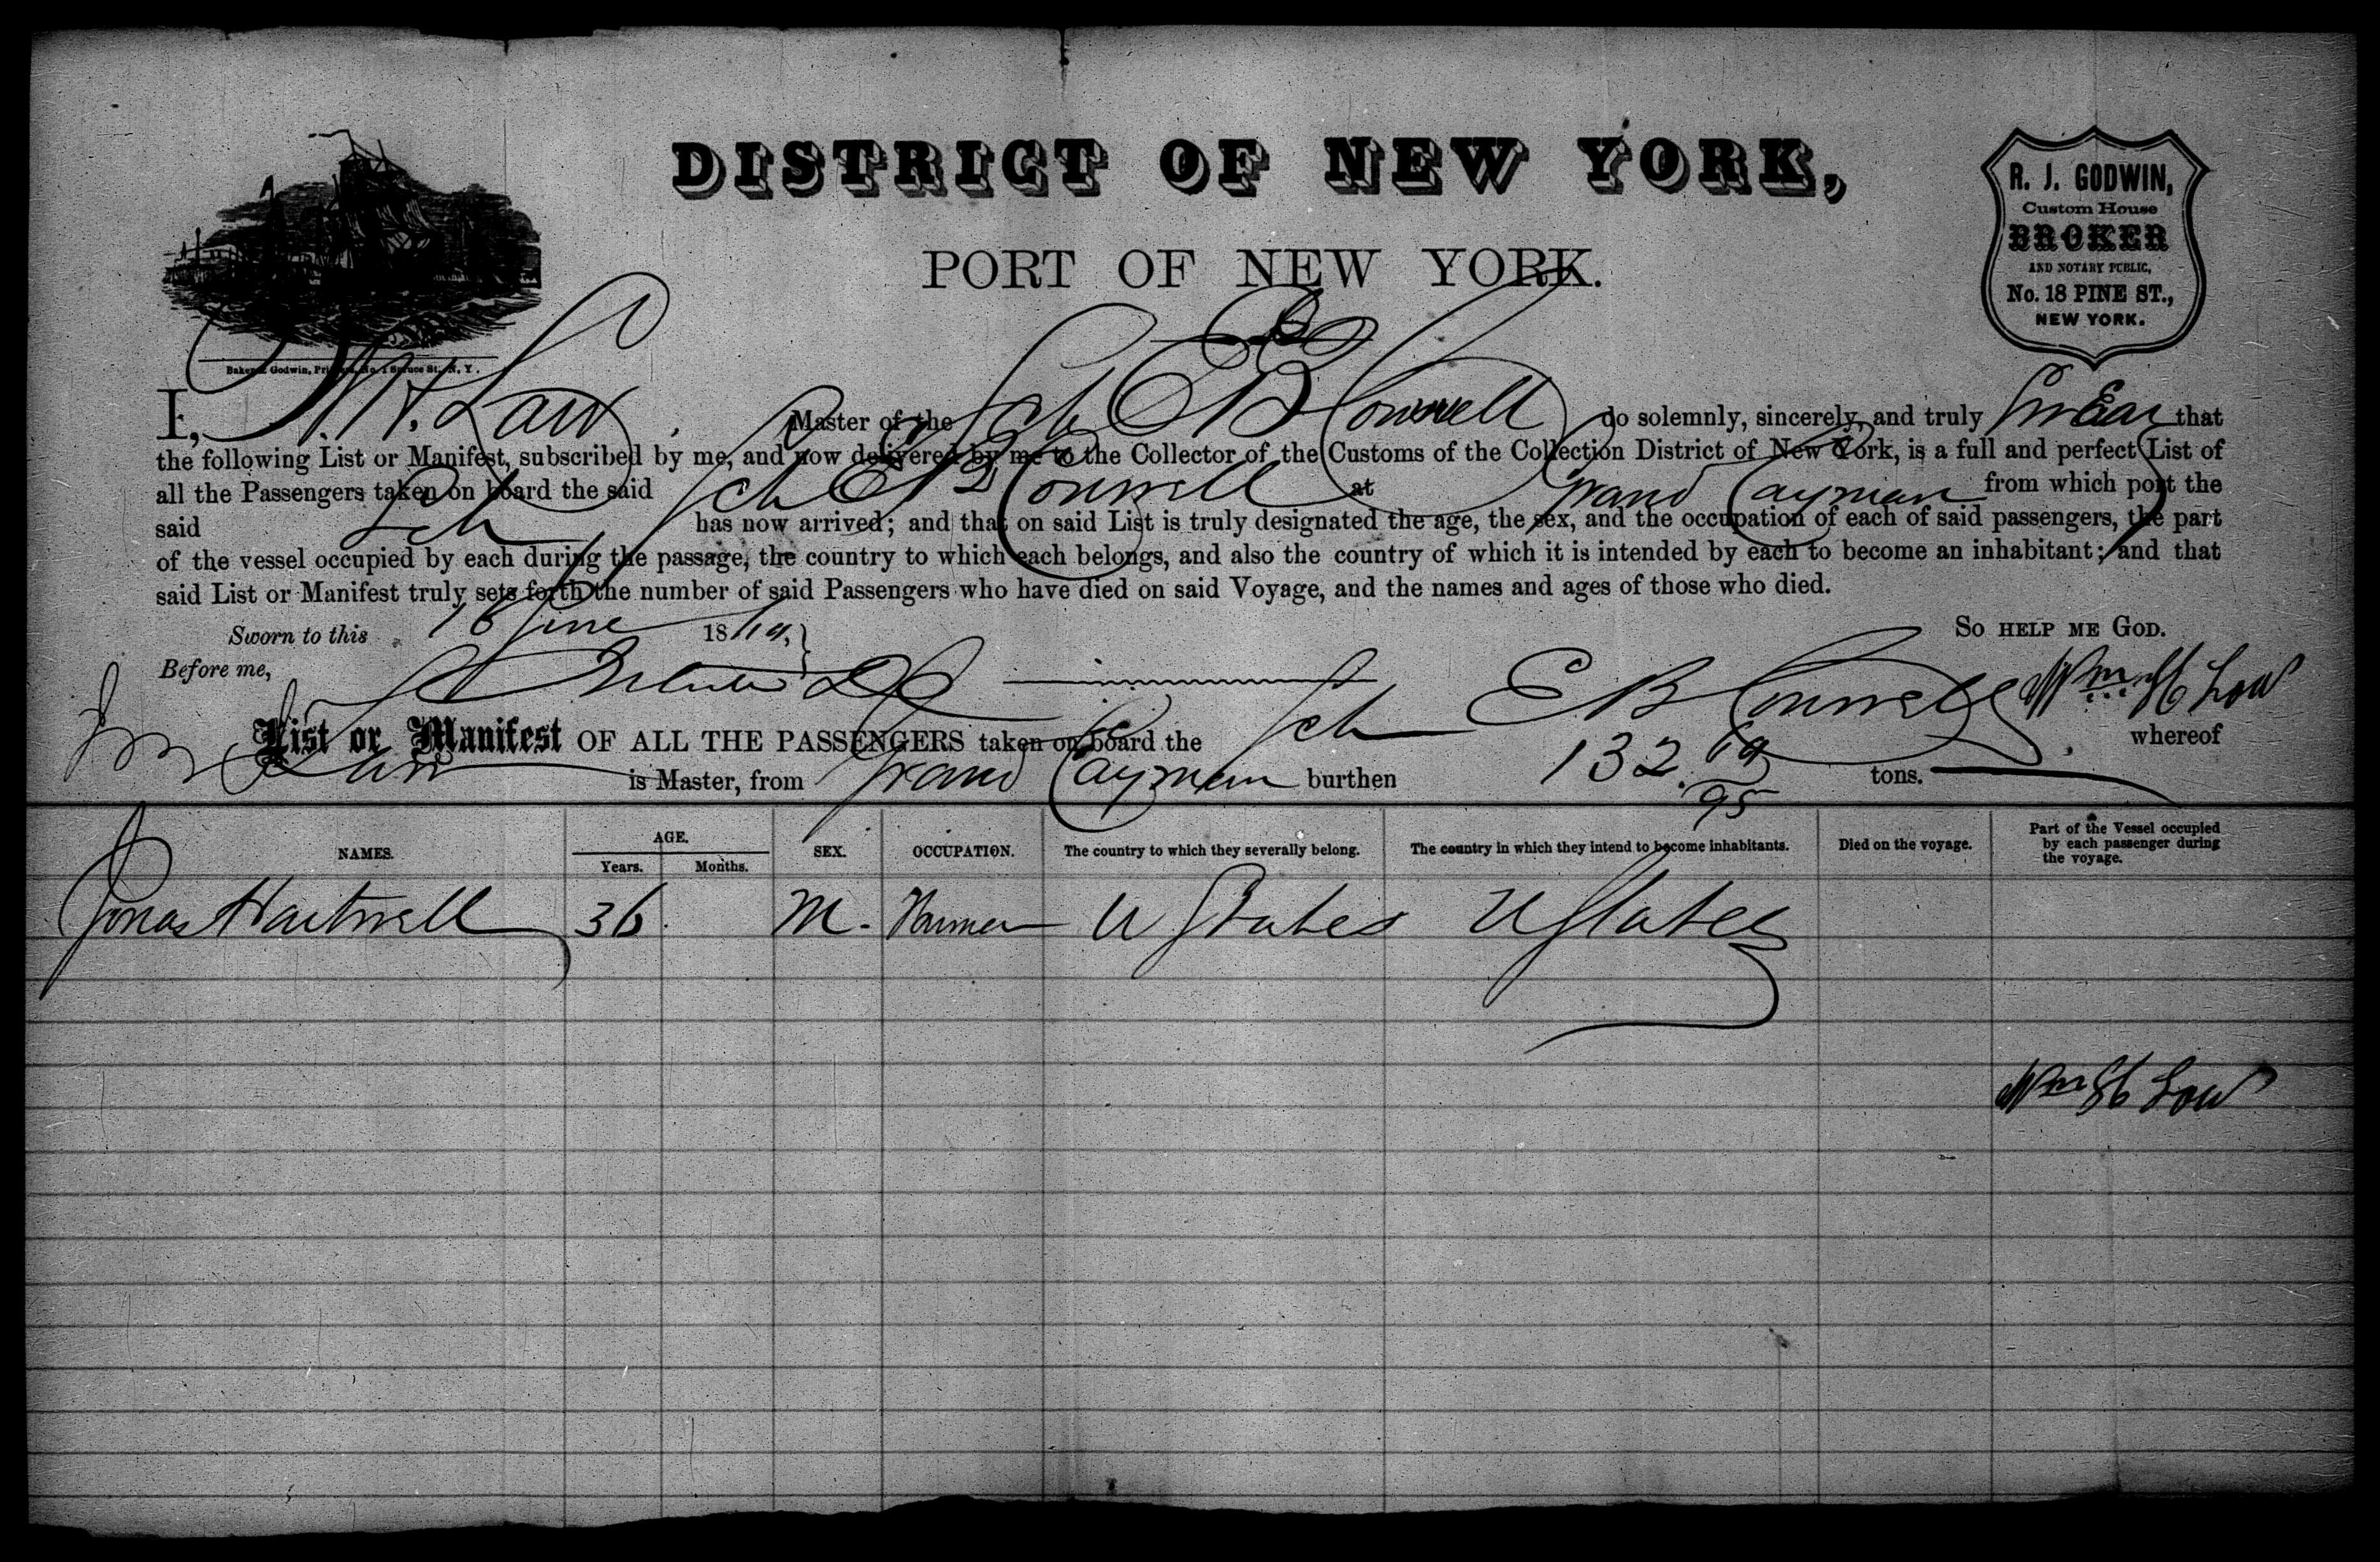 DISTRICT OF NEW YORK,
PORT OF NEW YORK.
R. J. GODWIN,
Custom House
BROKER
AND NOTARY PUBLIC,
No. 18 PINE ST.,
NEW YORK.
Baker & Godwin, Printers, No. 1 Spruce St., N. Y.
I, W. H. Law Master of the Sch E B Conwell do solemnly, sincerely, and truly swear that
the following List or Manifest, subscribed by me, and now delivered by me to the Collector of the Customs of the Collection District of New York, is a full and perfect List of
all the Passengers taken on board the said Sch E B Conwell at Grand Cayman from which port the
said Sch has now arrived; and that on said List is truly designated the age, the sex, and the occupation of each of said passengers, the part
of the vessel occupied by each during the passage, the country to which each belongs, and also the country of which it is intended by each to become an inhabitant; and that
said List or Manifest truly sets forth the number of said Passengers who have died on said Voyage, and the names and ages of those who died.
Sworn to this 16 June 18 So help me God.
Before me, Wm H Low
List or Manifest OF ALL THE PASSENGERS taken on board the Sch E B Conwell whereof
Law is Master, from Grand Cayman burthen 132 /95 tons.
NAMES. AGE. Years. Months. SEX. OCCUPATION. The country to which they severally belong. The country in which they intend to become inhabitants. Died on the voyage. Part of the Vessel occupied by each passenger during the voyage.
Jonas Hartwell 36 M. U States U States
Wm H Low